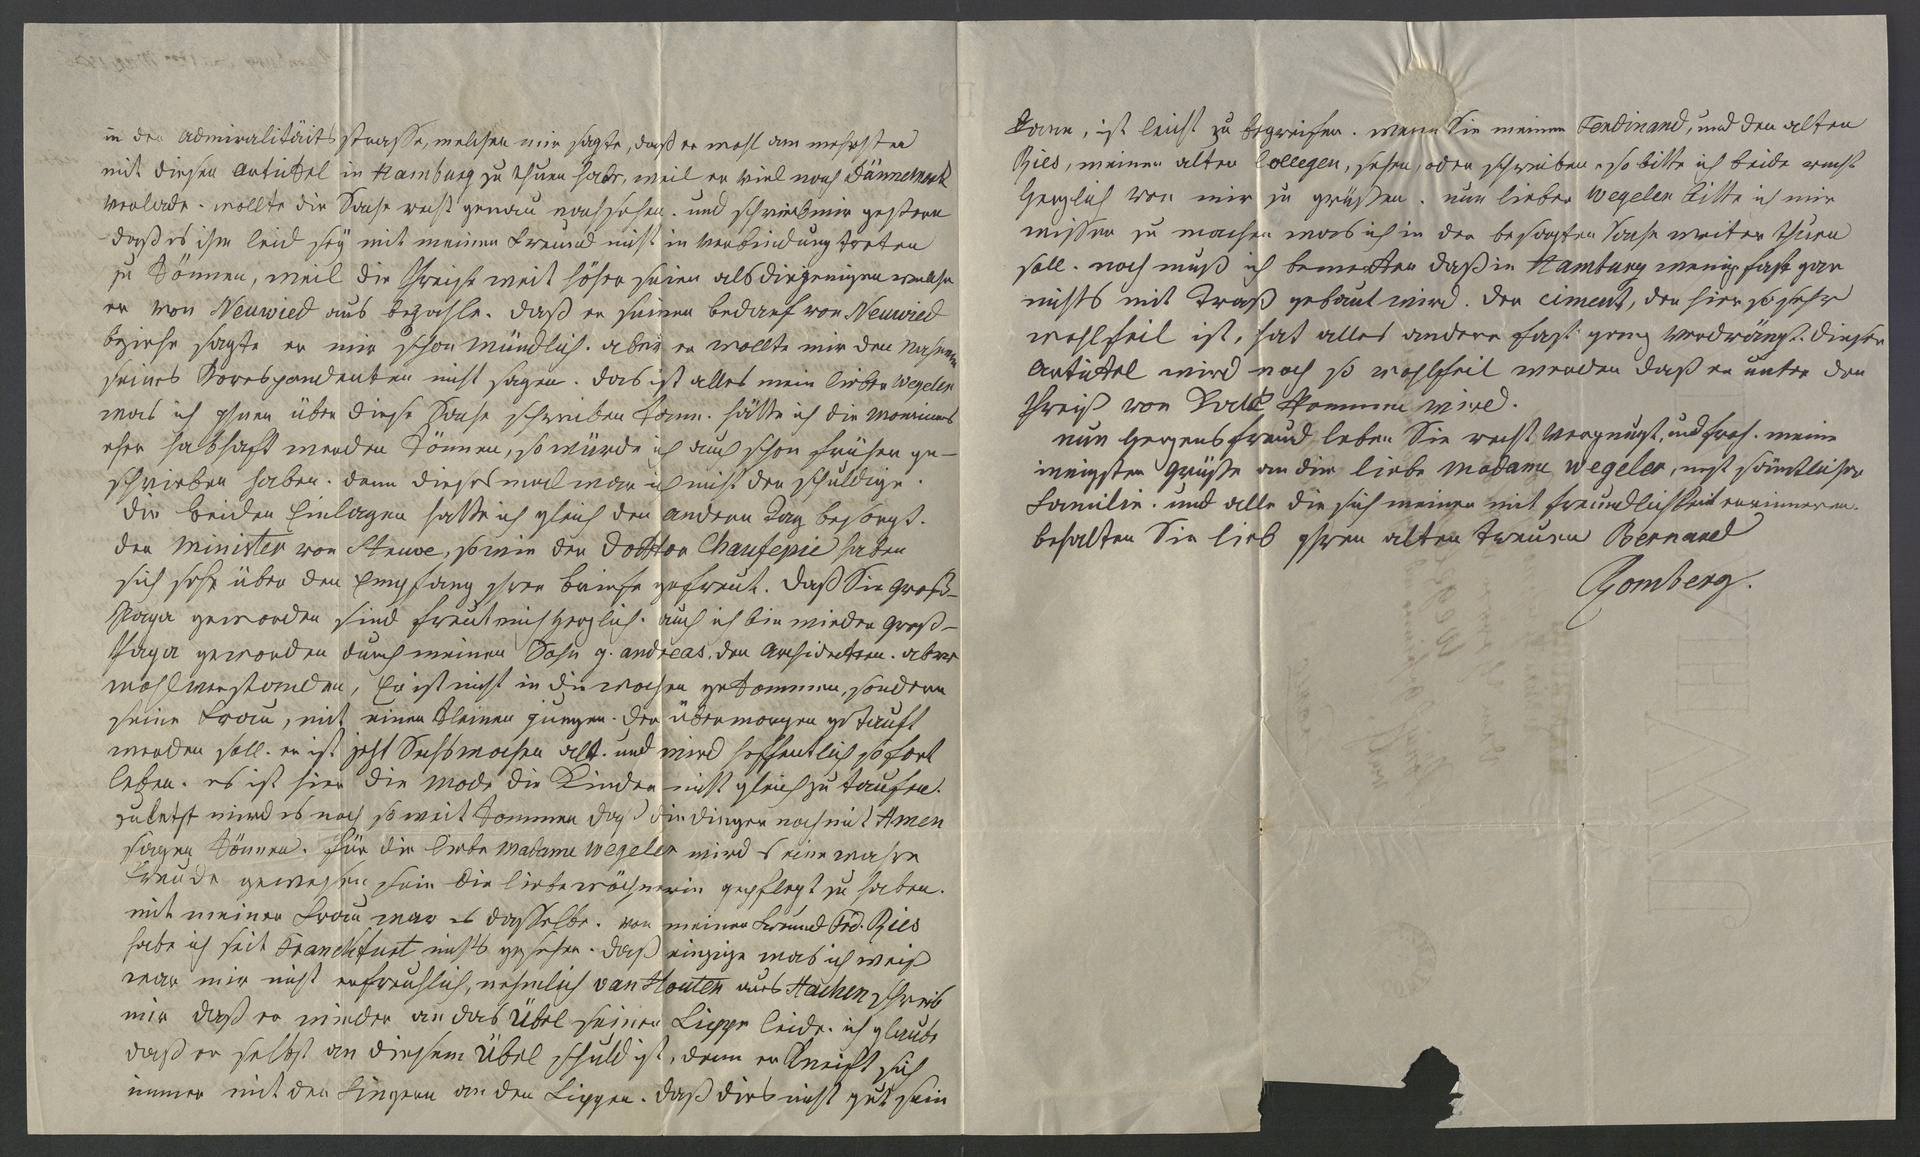 in der Admiralitäits strasse, welcher mir sagte, daß er wohl am mehrsten
mit diesen Artickel in Hamburg zu thuen habe, weil er viel nach Dännemark
verlade. wollte die Sache recht genau nachsehen. und schrieb mir gestern
daß es ihm leid sey mit meinen Freund nicht in Verbindung treten
zu können, weil die Preise weit höher seien als diejenigen welche
er von Neuwied aus bezahle. daß er seinen bedarf von Neuwied
beziehe sagte er mir schon mündlich. aber er wollte mir den Nahmen
seines Korespondenten nicht sagen. das ist alles mein lieber Wegeler
was ich Ihnen über diese Sache schreiben kann. hätte ich die
eher habhaft werden können, so würde ich auch schon früher ge-
schrieben haben. denn dieses mal war ich nicht der schuldige.
die beiden Einlagen hatte ich gleich den andern Tag besorgt.
der Minister von Struve, so wie der Docktor Chaufepie haben
sich sehr über den Empfang Ihrer briefe gefreut. daß Sie Groß-
Papa geworden sind freut mich herzlich. auch ich bin wieder Groß-
Papa geworden durch meinen Sohn g. andreas, den Archidecten. aber
wohlverstanden, Er ist nicht in die wochen gekommen, sondern
seine Frau, mit einen kleinen jungen. der übermorgen getauft
werden soll. er ist jetzt Sechs wochen alt. und wird hoffentlich so fort
leben. es ist hier die Mode die Kinder nicht gleich zu taufen.
zuletzt wird es noch so weit kommen daß die dinger noch mit Amen
sagen können. für die liebe Madame Wegeler wird es eine wahre
Freude gewesen sein die liebe wöchnerin gepflegt zu haben.
mit meiner Frau war es dasselbe. von meinen Freund Frd. Ries
habe ich seit Franckfurt nichts gesehen. daß einzige was ich weiß
war mir nicht erfreuhlich, nehmlich van Houten aus Aachen schreib
mir daß er wieder an das Übel seiner Lippe leide. ich glaube
daß er selbst an diesem Übel schuld ist, denn er kneift sich
immer mit den Fingern an den Lippen. daß dies nicht gut sein
kann, ist leicht zu begreifen. wenn Sie meinen Ferdinand, und den alten
Ries, meinen alten Collegen, sehen, oder schreiben so bitte ich beide recht
herzlich von mir zu grüßen. nun lieber Wegeler bitte ich mir
wissen zu machen was ich in der besagten Sache weiter thuen
soll. noch muß ich bemerken daß in Hamburg wenig fast gar
nichts mit Traß gebaut wird. der ciment, der hier so sehr
wohlfeil ist, hat alles andere fast ganz verdrängt. dieser
Artickel wird noch so wohlfeil werden daß er unter den
Preiß von Kalk kommen wird.
nun herzensfreund leben Sie recht vergnügt, und froh. meine
innigsten Grüße an die liebe Madame Wegeler, nebst sämtlicher
Familie. und alle die sich meiner mit freundlichkeit errinneren.
behalten Sie lieb Ihren alten treuen Bernard
Romberg.